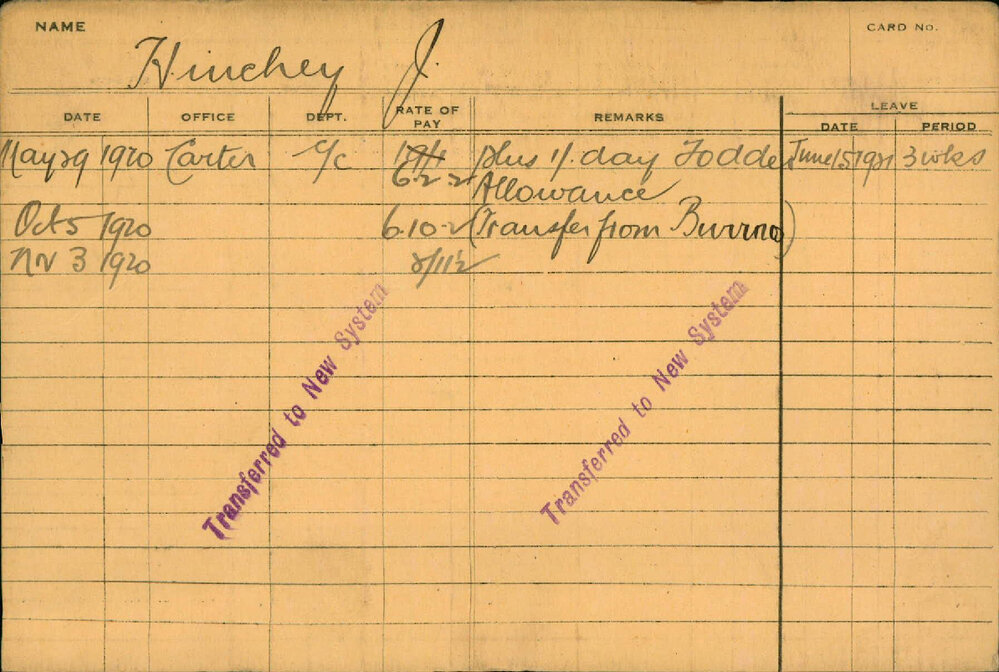 NAME
CARD No.
Hinchey J.
DATE OFFICE DEPT. RATE OF PAY REMARKS LEAVE
DATE PERIOD
May 29 1920 Carter plus 1/. day Fodder June 15 1921 3 wks
6.2.2 Allowance
Oct 5 1920 6.10.2 (Transfer from
Nov 3 1920
Transferred to New System
Transferred to New System